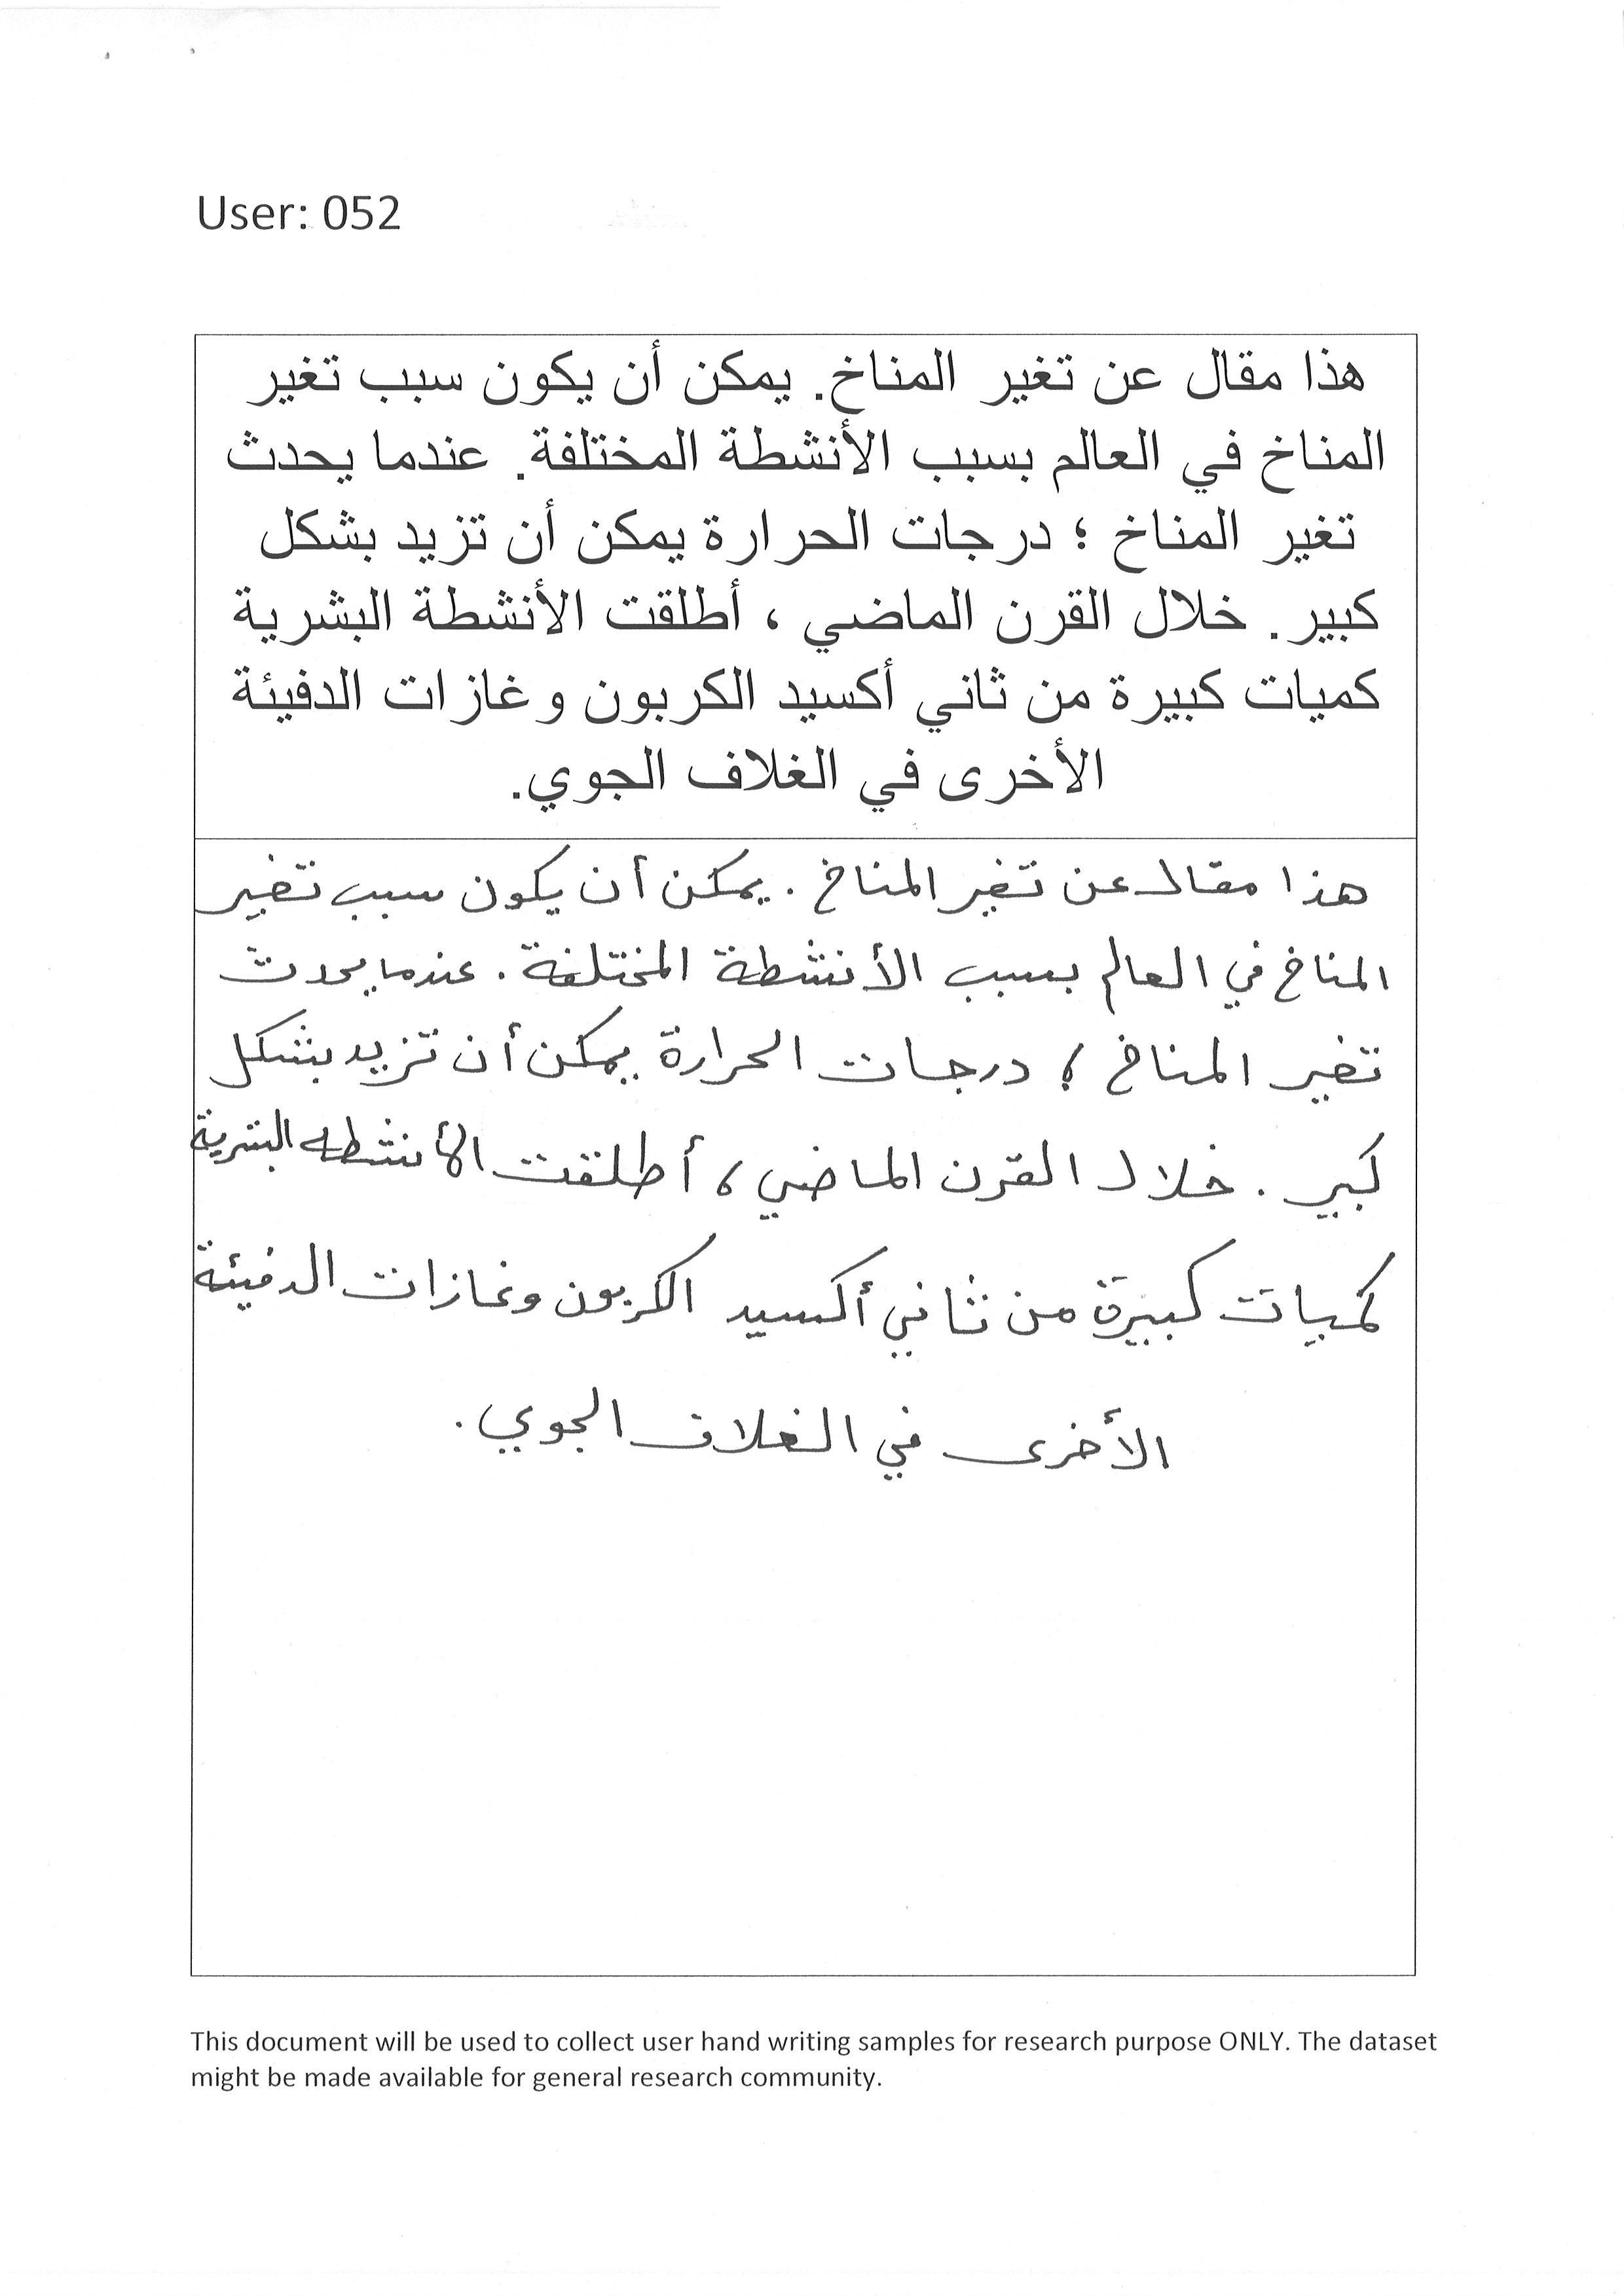 User: 052
هذا مقال عن تغير المناخ. يمكن أن يكون سبب تغير
المناخ في العالم بسبب الأنشطة المختلفة. عندما يحدث
تغير المناخ ؛ درجات الحرارة يمكن أن تزيد بشكل
كبير. خلال القرن الماضي ، أطلقت الأنشطة البشرية
كميات كبيرة من ثاني أكسيد الكربون وغازات الدفيئة
الأخرى في الغلاف الجوي.
هذا مقال عن تغير المناخ . يمكن أن يكون سبب تغير
المناخ في العالم بسبب الأنشطة المختلفة . عندما يحدث
تغير المناخ ؛ درجات الحرارة يمكن أن تزيد بشكل
كبير . خلال القرن الماضي ، أطلقت الأنشطه البشرية
كميات كبيرة من ثاني أكسيد الكربون وغازات الدفيئة
الأخرى في الغلاف الجوي .
This document will be used to collect user hand writing samples for research purpose ONLY. The dataset
might be made available for general research community.